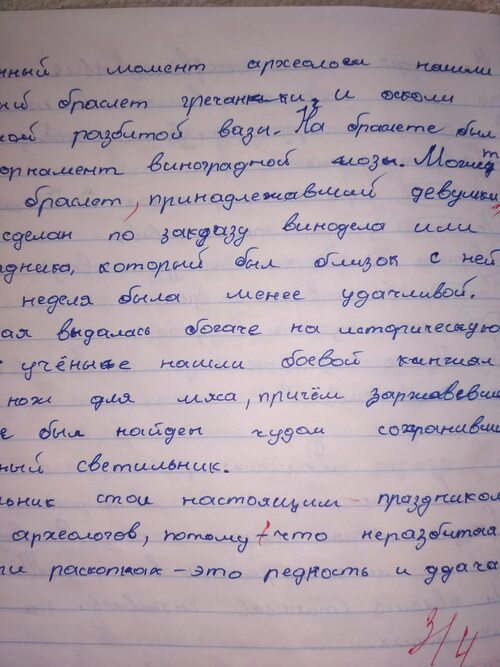 нный момент археологи нашли
ний браслет гречанки, и оскол
кой разбитой вазы. На браслете был
орнамент виноградной лозы. Может
браслет, принадлежавший девушки
сделан по заказу винодела или
адника, который был близок с ней
неделя была менее удачливой.
ая выдалась богаче на историческую
учёные нашли боевой кингжал
нож для мяса, причём заржавевши
е был найден чудом сохранивши
ный светильник.
льник стал настоящим праздником
археологов, потому что неразбитая
ри раскопках - это редкость и удача
3/4